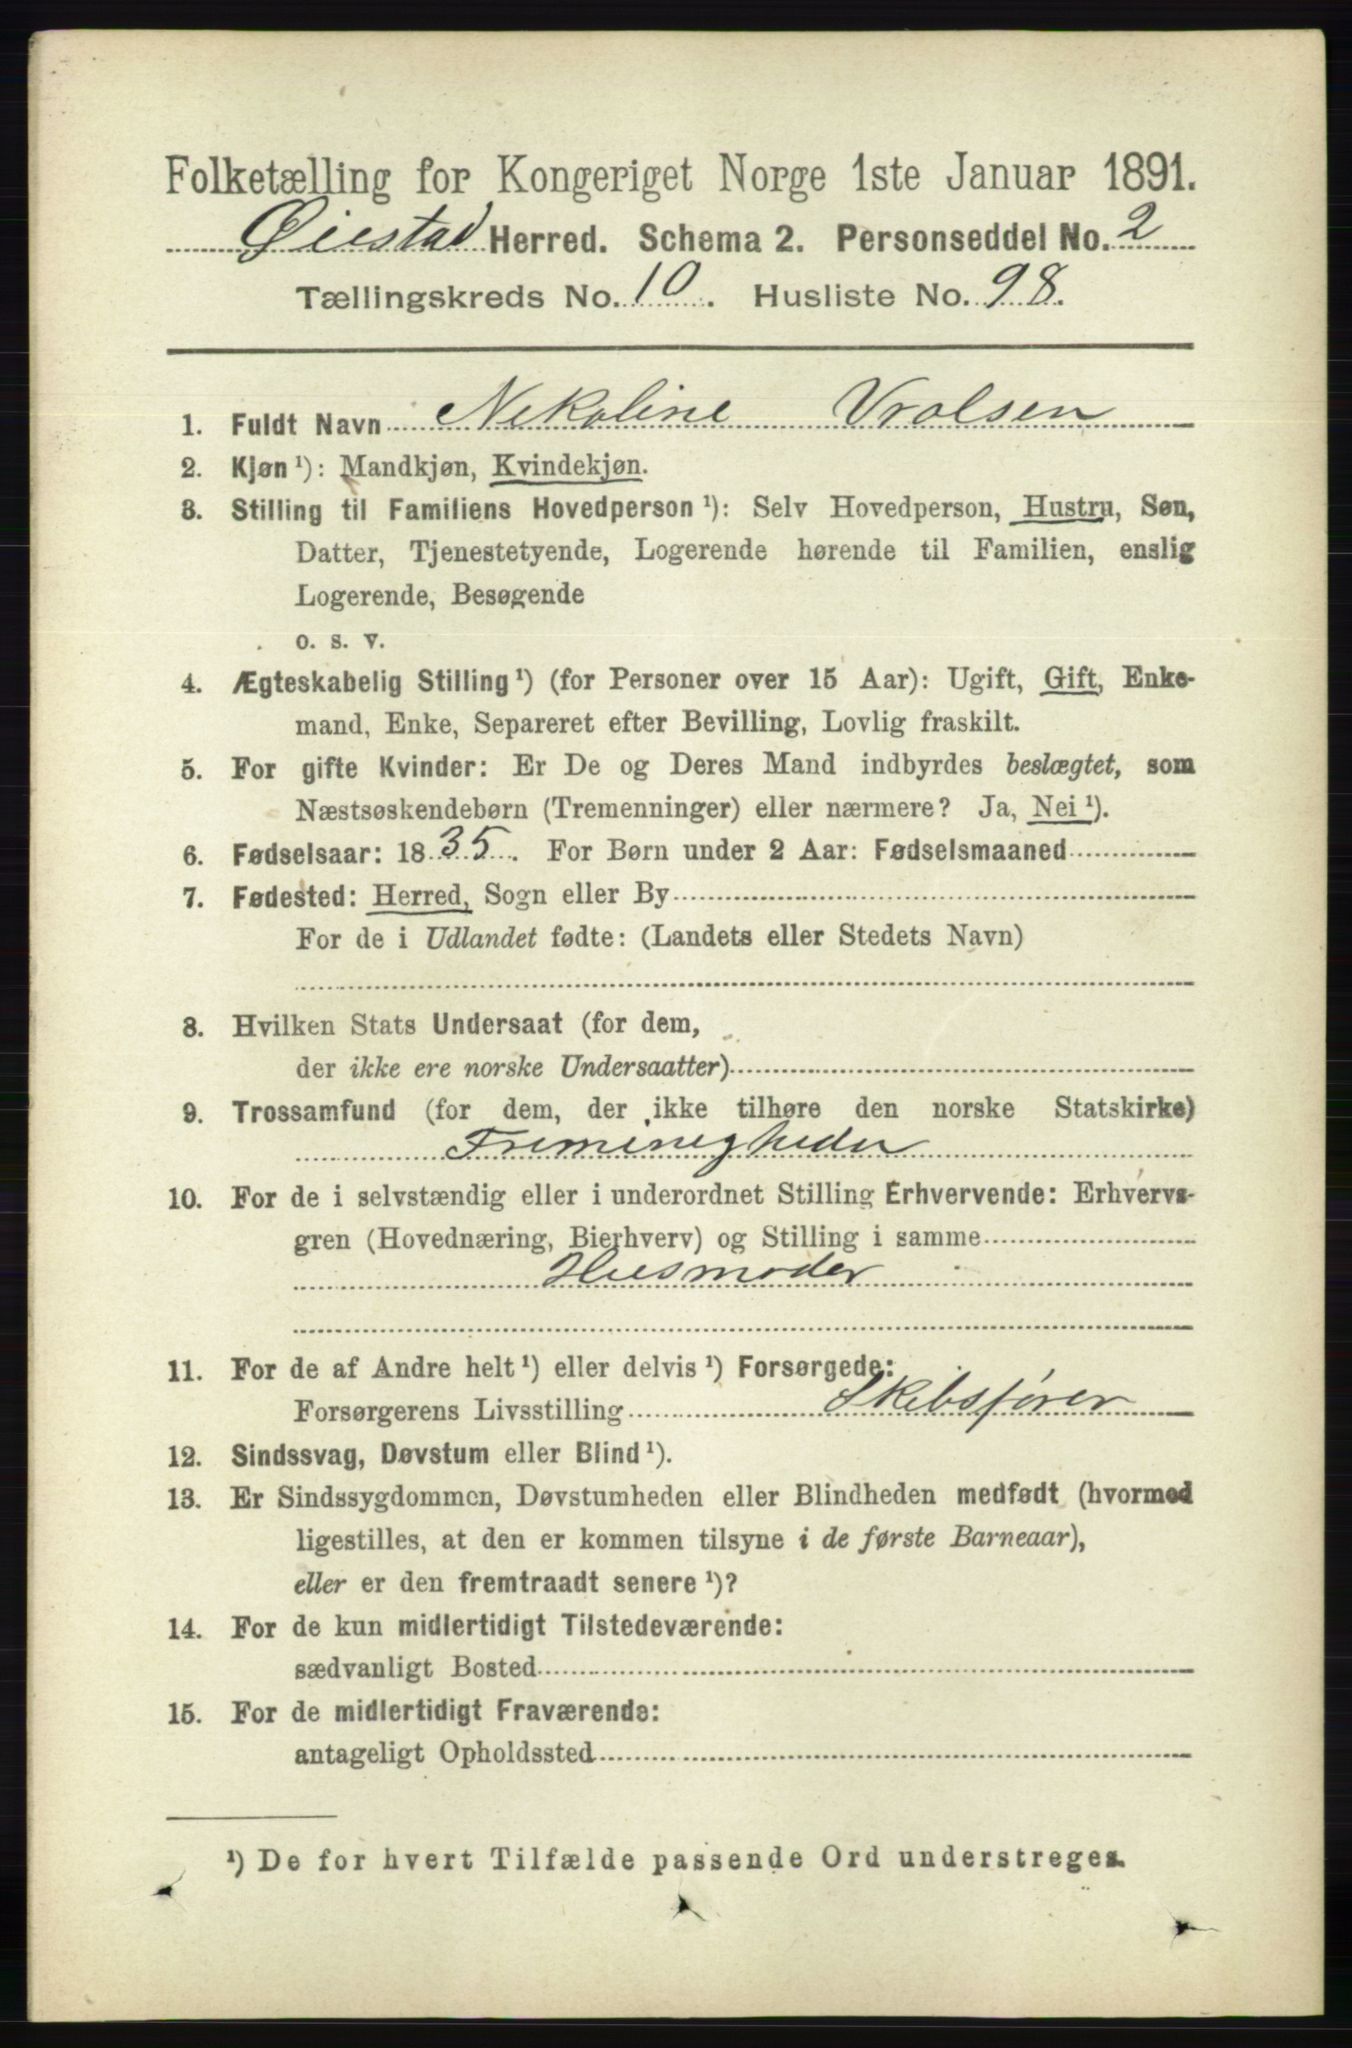 Folketælling for Kongeriget Norge 1ste Januar 1891.
Øiestad Herred. Schema 2. Personseddel No. 2
Tællingskreds No. 10. Husliste No. 98.
1. Fuldt Navn Nekoline Vrolsen
2. Kjøn ¹): Mandkjøn, Kvindekjøn.
3. Stilling til Familiens Hovedperson ¹): Selv Hovedperson, Hustru, Søn,
Datter, Tjenestetyende, Logerende hørende til Familien, enslig
Logerende, Besøgende
o. s. v.
4. Ægteskabelig Stilling ¹) (for Personer over 15 Aar): Ugift, Gift, Enke-
mand, Enke, Separeret efter Bevilling, Lovlig fraskilt.
5. For gifte Kvinder: Er De og Deres Mand indbyrdes beslægtet, som
Næstsøskendebørn (Tremenninger) eller nærmere? Ja, Nei ¹).
6. Fødselsaar: 1835. For Børn under 2 Aar: Fødselsmaaned
7. Fødested: Herred, Sogn eller By
For de i Udlandet fødte: (Landets eller Stedets Navn)
8. Hvilken Stats Undersaat (for dem,
der ikke ere norske Undersaatter)
9. Trossamfund (for dem, der ikke tilhøre den norske Statskirke)
Frimenigheder
10. For de i selvstændig eller i underordnet Stilling Erhvervende: Erhvervs-
gren (Hovednæring, Bierhverv) og Stilling i samme
Husmoder
11. For de af Andre helt ¹) eller delvis ¹) Forsørgede:
Forsørgerens Livsstilling Skibsfører
12. Sindssvag, Døvstum eller Blind ¹).
13. Er Sindssygdommen, Døvstumheden eller Blindheden medfødt (hvormed
ligestilles, at den er kommen tilsyne i de første Barneaar),
eller er den fremtraadt senere ¹)?
14. For de kun midlertidigt Tilstedeværende:
sædvanligt Bosted
15. For de midlertidigt Fraværende:
antageligt Opholdssted
¹) De for hvert Tilfælde passende Ord understreges.